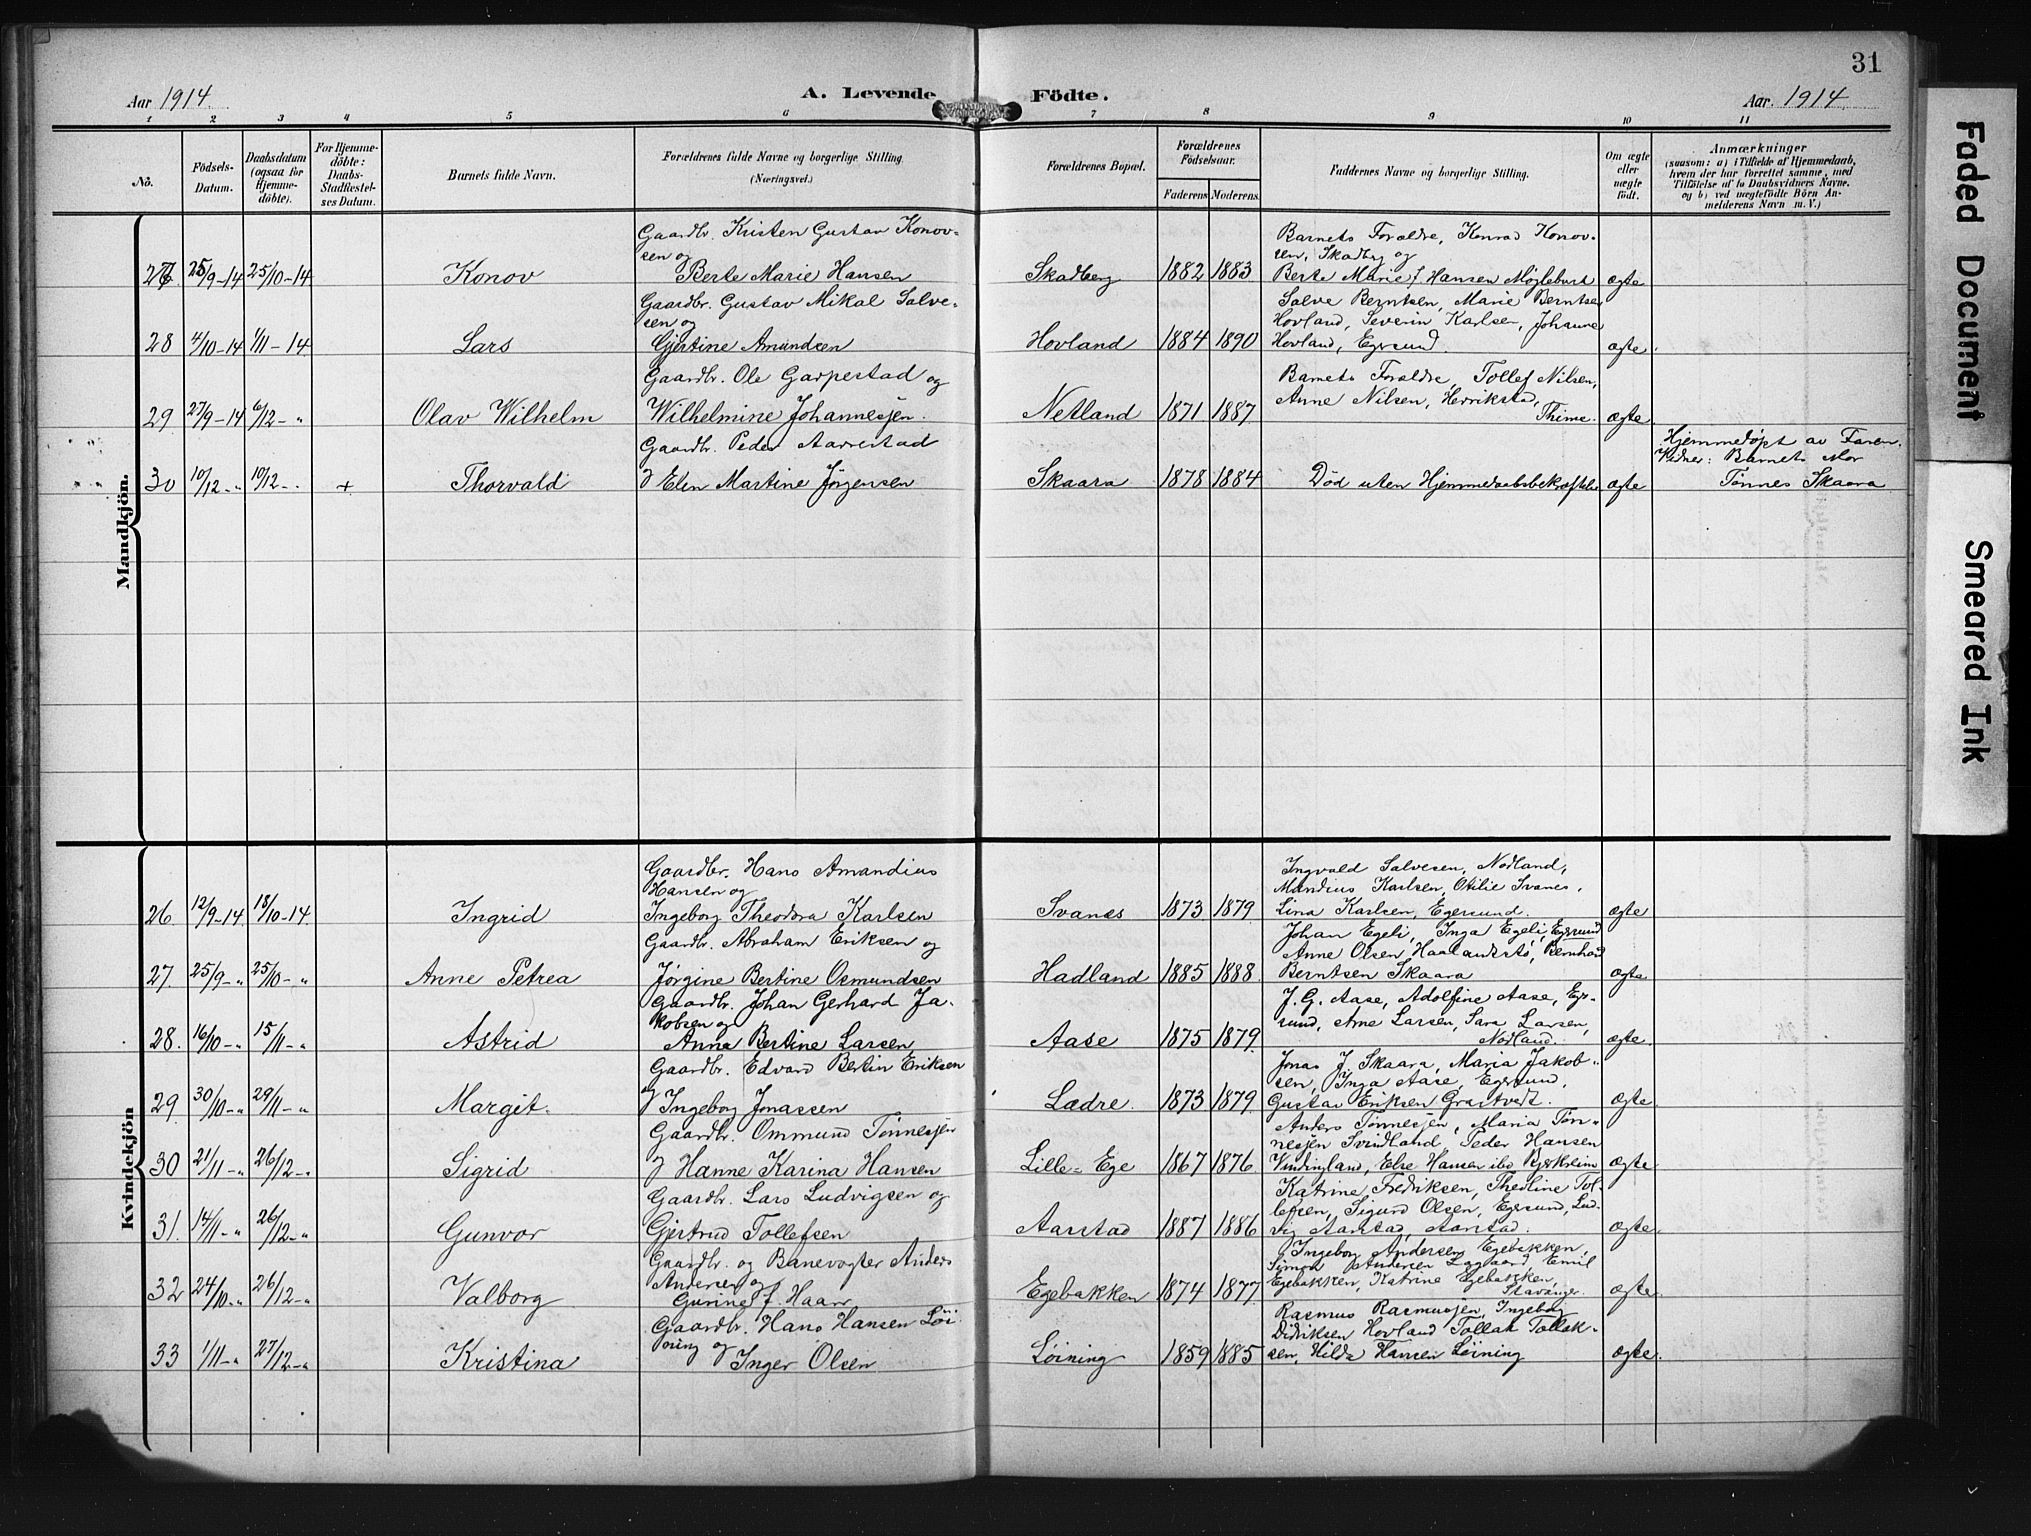 31
Aar 1914.
A. Levende Födte.
Aar. 1914.
1 2 3 4 5 6 7 8 9 10 11
No.
Födsels-Datum.
Daabsdatum (ogsaa for Hjemme-döbte).
For Hjemme-döbte: Daabs-Stadfæstel-ses Datum.
Barnets fulde Navn.
Forældrenes fulde Navne og borgerlige Stilling.
(Næringsvei.)
Forældrenes Bopæl.
Forældrenes Födselsaar.
Faderens Moderens.
Faddernes Navne og borgerlige Stilling.
Om ægte eller uægte födt.
Anmærkninger
(saasom: a) i Tilfælde af Hjemmedaab,
hvem der har forrettet samme, med
Tilföielse af to Daabsvidners Navne.
og b) ved uægtefödte Börn An-
melderens Navn m. V.)
Mandkjön.
Gaardbr. Kristen Gustav Konov-
sen og
27 25/9-14 25/10-14 Konov Berte Marie Hansen Skadberg 1882 1883
Barnets Forældre, Konrad Konov-
sen, Skadberg og
Berte Marie f. Hansen Møglebust ægte
Gaardbr. Gustav Mikal Salve-
sen og
28 4/10-14 1/11-14 Lars Gjertine Amundsen Hovland 1884 1890
Salve Berntsen, Marie Berntsen
Hovland, Severin Karlsen, Johanne
Hovland, Egersund. ægte.
Gaardbr. Ole Garpestad og
29 27/9-14 6/12-" Olav Wilhelm Wilhelmine Johannesjen. Netland 1871 1887
Barnets Forældre, Tollef Nilsen,
Anne Nilsen, Herrikstad,
Thime. ægte.
Gaardbr. Peder Aarrestad
30 10/12-" 10/12-" + Thorvald & Elen Martine Jørgensen Skaara 1878 1884 Død uten Hjemmedaabsbekræftelse ægte
Hjemmedøpt av Faren.
Vidner: Barnets Mor
Tønnes Skaara
Kvindekjön
Gaardbr. Hans Amandius
Hansen og
26 12/9-14 18/10-14 Ingrid Ingeborg Theodora Karlsen Svanes 1873 1879
Ingvald Salvesen, Nodland,
Mandius Karlsen, Otilie Svanes,
Lina Karlsen, Egersund. ægte
Gaardbr. Abraham Eriksen og
27. 25/9-" 25/10-" Anne Petrea Jørgine Bertine Osmundsen Hadland 1885 1888
Johan Egeli, Inga Egeli, Egersund
Anne Olsen, Haalandstø, Bernhard
Berntsen Skaara ægte
Gaardbr. Johan Gerhard Ja-
kobsen og
28. 16/10-" 15/11-" Astrid Anna Bertine Larsen Aase 1875 1879.
J. G. Aase, Adolfine Aase, Eg-
sund, Arne Larsen, Sara Larsen,
Nodland. ægte.
Gaardbr. Edvard Bertin Eriksen
29. 30/10-" 29/11-" Margit. og Ingeborg Jonassen Lædre. 1873 1879.
Jonas J. Skaara, Maria Jakob-
sen, Inga Aase, Egersund,
Gustav Eriksen Grastveit. ægte.
Gaardbr. Ommund Tønnesjen
30 21/11-" 26/12-" Sigrid & Hanne Karina Hansen Lille-Ege 1867 1876
Anders Tønnesjen, Maria Tøn-
nesjen Svindland, Peder Hansen
Vindingland, Else Hansen ibd Bjerkreim ægte.
Gaardbr. Lars Ludvigsen og
31. 14/11-" 26/12-" Gunvor Gjertrud Tollefsen Aarstad 1887 1886
Katrine Fredriksen, Thedline Tol-
lefsen, Sigurd Olsen, Egersund, Lud-
vig Aarstad, Aarstad. ægte.
Gaardbr. og Banevogter Anders
Andersen og
32 24/10-" 26/12-" Valborg Gurine f. Haarr Egebakken 1874 1877
Ingeborg Andersen Egebakken,
Simon Andersen, Emil
Egebakken, Katrine Egebakken,
Stavanger. ægte
Gaardbr. Hans Hansen Löi-
ning og
33 1/11-" 27/12-" Kristina Inger Olsen Löining 1859 1885
Rasmus Rasmussen, Ingeborg
Didriksen Hovland Tollak Tollak-
sen, Hilda Hansen Löining ægte.
Faded Document
Smeared Ink